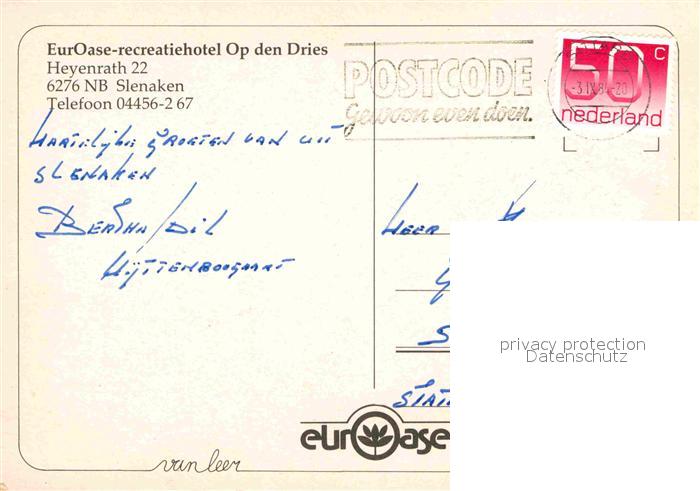 EurOase-recreatiehotel Op den Dries
Heyenrath 22
6276 NB Slenaken
Telefoon 04456-2 67
POSTCODE
Gewoon even doen.
50 c
-3.IX.84-20
nederland
Hartelijke groeten van uit
Slenaken
Bertha / Dil
Uyttenboogaart
Heer
privacy protection
Datenschutz
eurOase
van leer